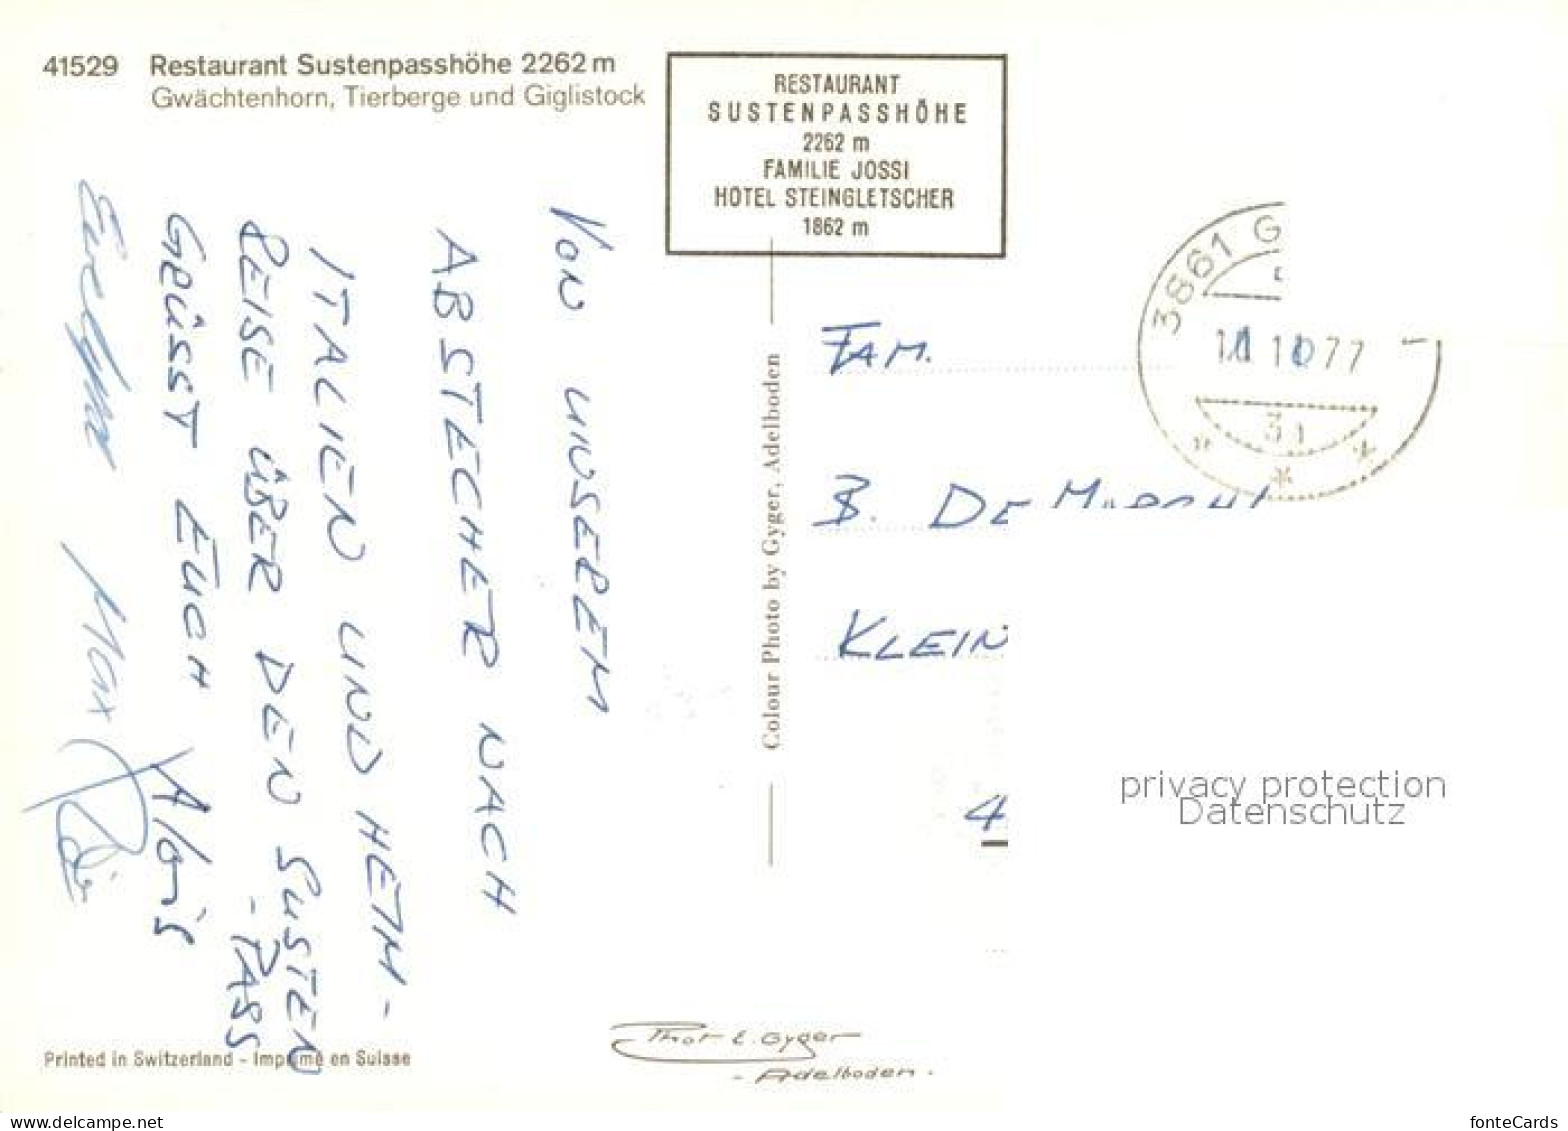 41529 Restaurant Sustenpasshöhe 2262 m
Gwächtenhorn, Tierberge und Giglistock
RESTAURANT
SUSTENPASSHÖHE
2262 m
FAMILIE JOSSI
HOTEL STEINGLETSCHER
1862 m
VON UNSEREM
ABSTECHER NACH
ITALIEN UND HEIM-
REISE ÜBER DEN SUSTEN
- PASS
GRÜSST EUCH Alois
Max
Colour Photo by Gyger, Adelboden
3861 G
77
FAM.
B. DE
KLEIN
4
privacy protection
Datenschutz
Printed in Switzerland - Imprimé en Suisse
Phot E. Gyger
- Adelboden -
www.delcampe.net
fonteCards